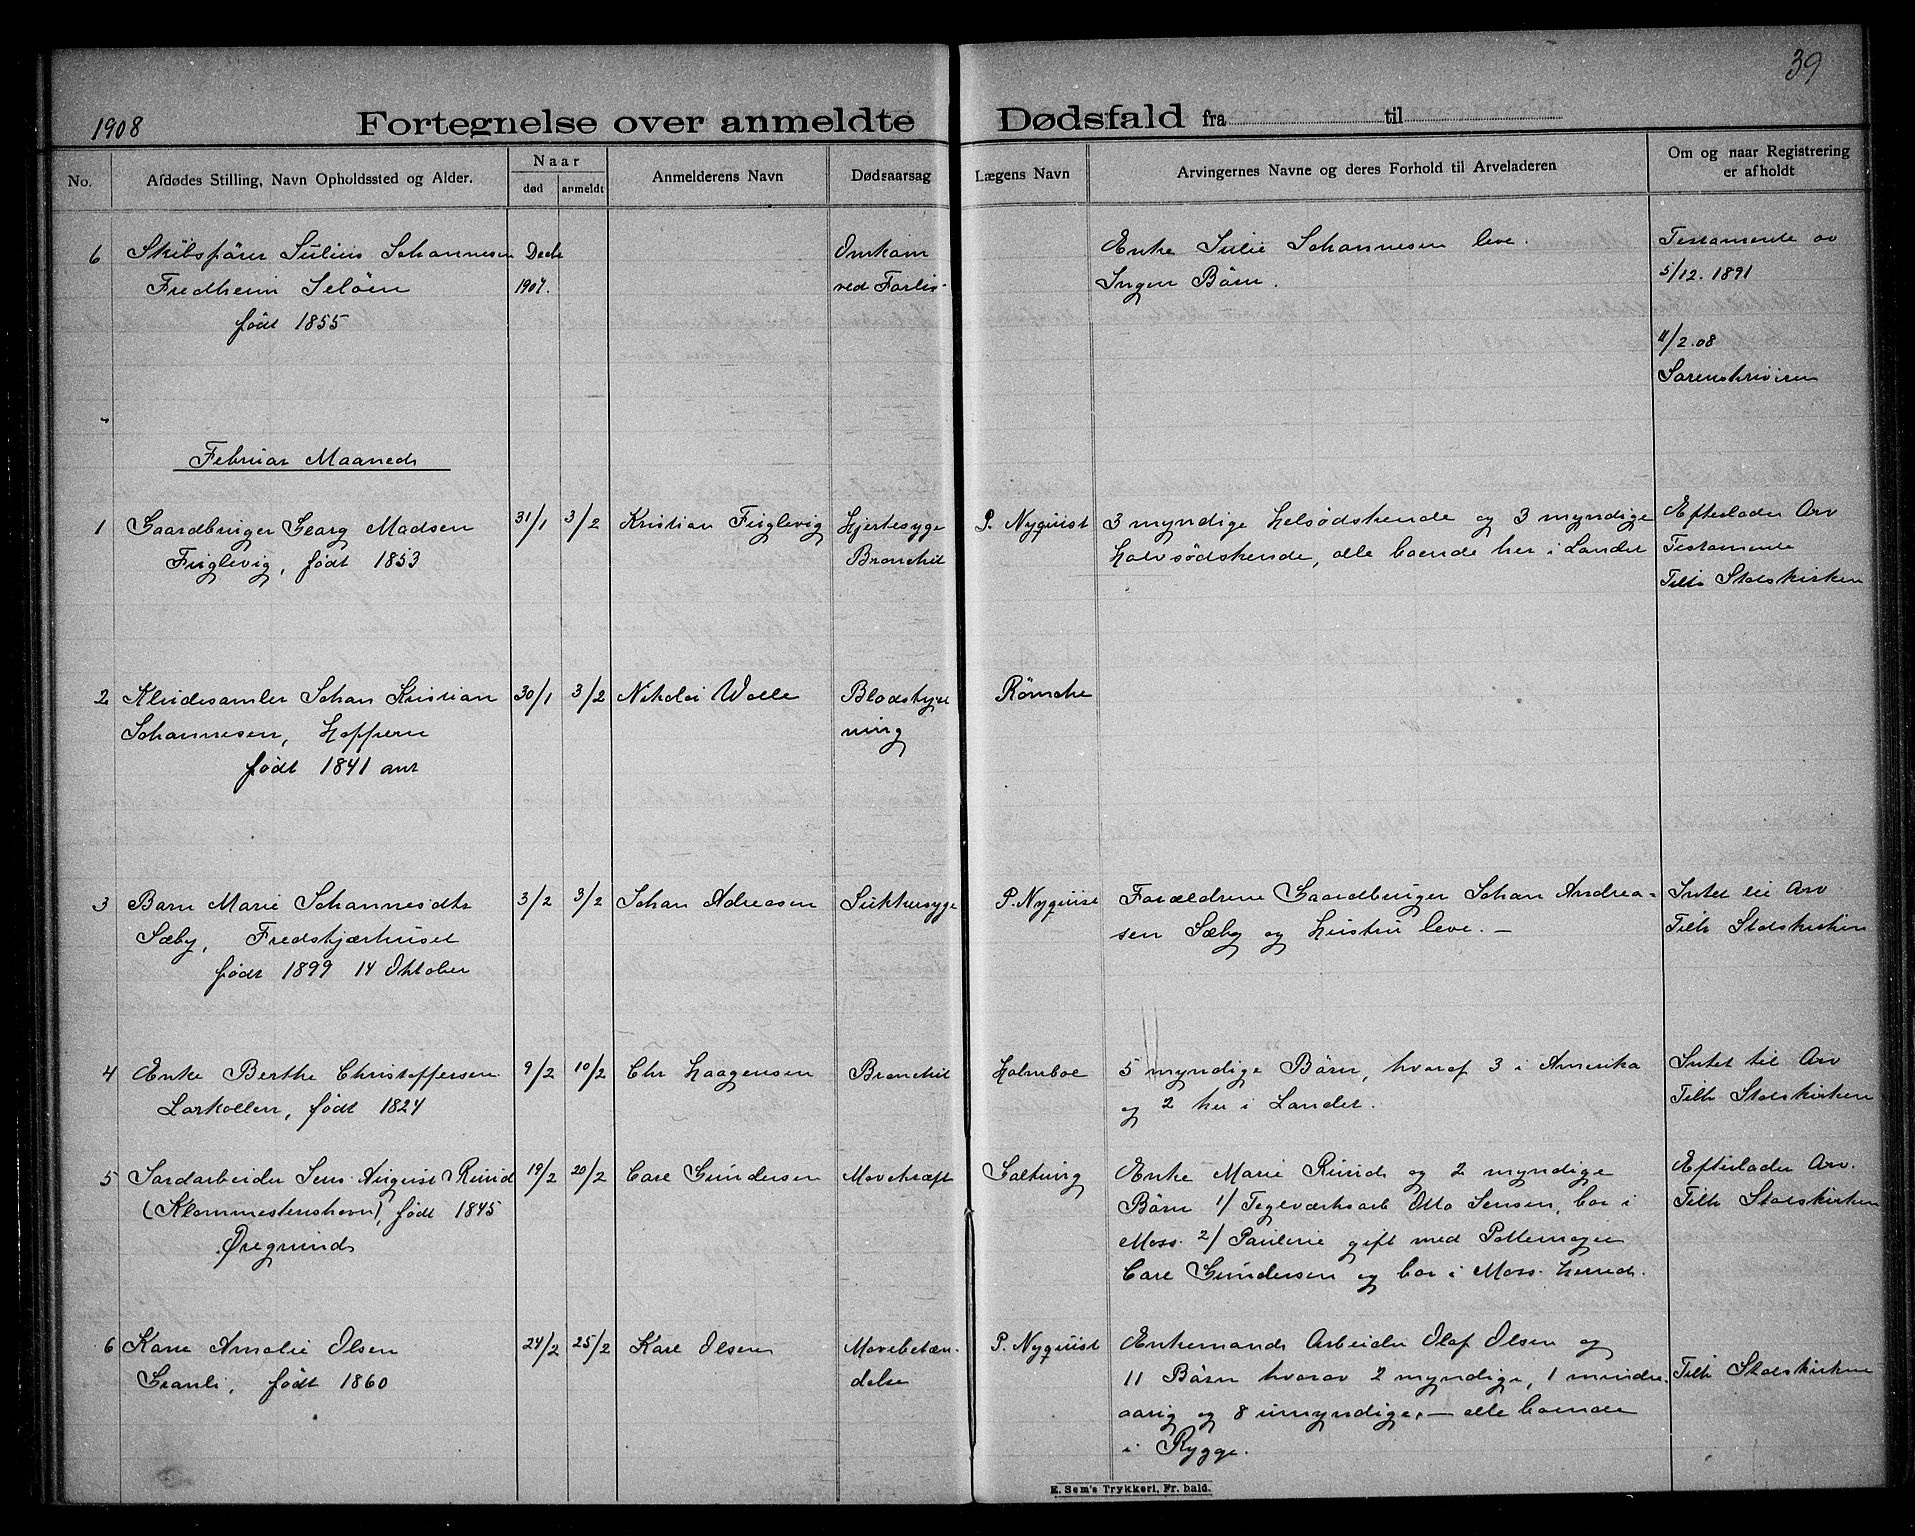 39
1908
Fortegnelse over anmeldte Dødsfald fra til
No.
Afdødes Stilling, Navn Opholdssted og Alder.
Naar
død anmeldt
Anmelderens Navn
Dødsaarsag
Lægens Navn
Arvingernes Navne og deres Forhold til Arveladeren
Om og naar Registrering
er afholdt
6 Skibsfører Julius Johannesen
Fredheim Jeløen
født 1855
Decb
1907.
Omkom
ved Forlis
Enke Julie Johannesen leve.
Ingen Børn.
Testamente av
5/12. 1891
11/2.08
Sorenskriveren
Februar Maaned
1 Gaardbruger Georg Madsen
Fuglevig, født 1853
31/1 3/2 Kristian Fuglevig
Hjertesyge
Bronchit
P. Nyquist
3 myndige helsødskende og 3 myndige
halvsødskende, alle boende her i Landet
Efterlader Arv
Testamente
Tilh Statskirken
2 Kludesamler Johan Kristian
Johannesen, Hoppern
født 1841
30/1 3/2 Nikolai Wolle
Blodstyrt
ning
Rømcke
3 Barn Marie Johannesdtr
Sæby, Fredskjærhuset
født 1899 14 Oktober
3/2 3/2 Johan Adreasen
Sukkersyge
P. Nyquist
Forældrene Gaardbruger Johan Andrea-
sen Sæby og Hustru leve. —
Intet til Arv
Tilh Statskirken
4 Enke Berthe Christoffersen
Larkollen, født 1824
9/2 10/2 Chr Haagensen
Bronchit
Holmboe
5 myndige Børn, hvoraf 3 i Amerika
og 2 her i Landet.
Intet til Arv
Tilh Statskirken
5 Jordarbeider Jens August Ruud
(Klommestenshavn), født 1845
Øregrund
19/2 20/2 Carl Gundersen
Mavekræft
Saltvig
Enke Marie Ruud og 2 myndige
Børn 1/ Teglværksarb Otto Jensen, bor i
Moss. 2/ Pauline gift med Pottemager
Carl Gundersen og bor i Moss herred.
Efterlader Arv.
Tilh Statskirken
6 Kone Amalie Olsen
Granli, født 1860
24/2 25/2 Karl Olsen
Mavebetæn-
delse
P. Nyquist
Enkemand Arbeider Olaf Olsen og
11 Børn hvorav 2 myndige, 1 mindre-
aarig og 8 umyndige, — alle boende
i Rygge.
Tilh Statskirken
E. Sem's Trykkeri, Fr.hald.